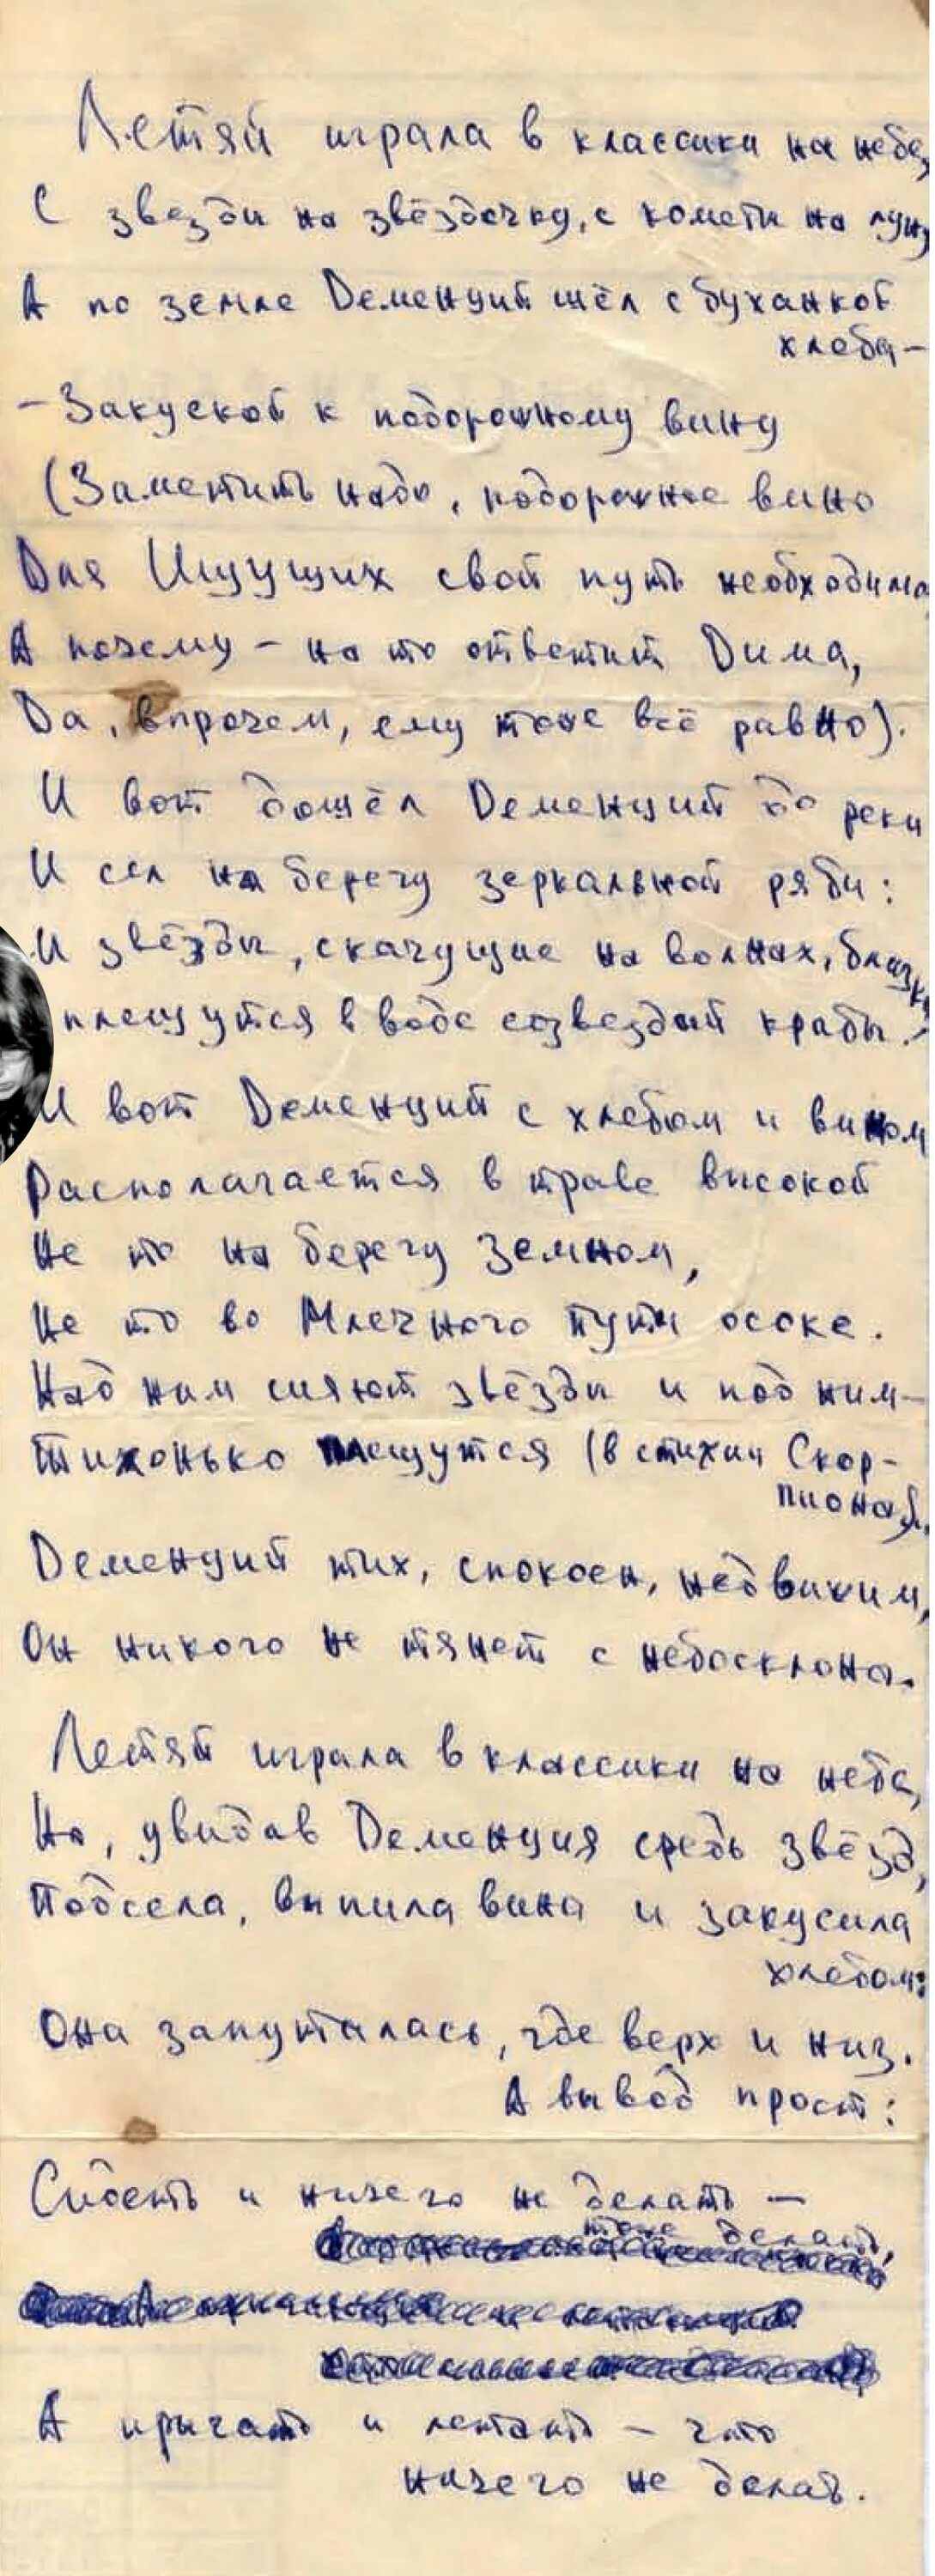 Летяй играла в классики на небе,
С звезды на звёздочку, с кометы на луну
А по земле Деменций шёл с буханкой
хлеба –
– Закуской к подорожному вину
(Заметить надо, подорожное вино
Для Ищущих свой путь необходимо
А почему – на то ответит Дима,
Да, впрочем, ему тоже всё равно).
И вот дошёл Деменций до реки
И сел на берегу зеркальной ряби:
И звёзды, скачущие на волнах, близки
плещутся в воде созвездий крабы.
И вот Деменций с хлебом и вином
Располагается в траве высокой
Не то на берегу земном,
Не то во Млечного пути осоке.
Над ним сияют звёзды и под ним –
Тихонько плещутся (в стихии Скор-
пиона).
Деменций тих, спокоен, недвижим,
Он никого не тянет с небосклона.
Летяй играла в классики на небе,
Но, увидав Деменция средь звёзд,
Подсела, выпила вина и закусила
хлебом:
Она запуталась, где верх и низ.
А вывод прост:
Сидеть и ничего не делать –
тоже делать,
А прыгать и летать – что
ничего не делать.